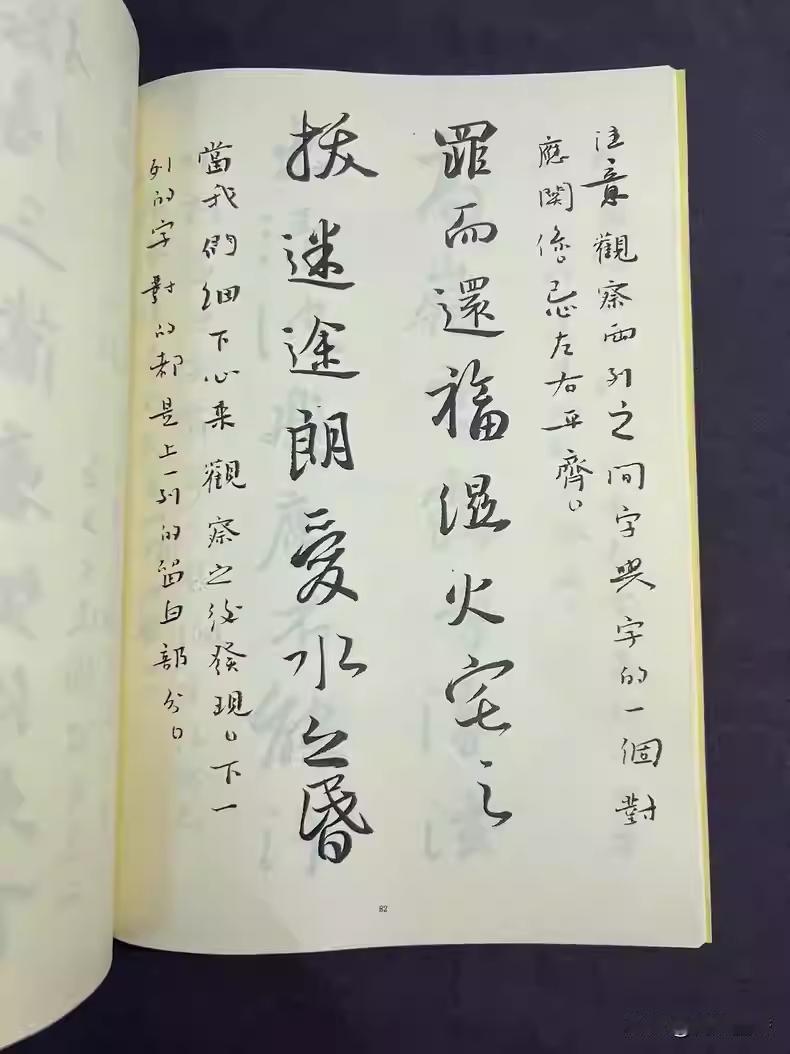 注意觀察兩列之間字與字的一個對
應関係。忌左右平齊。
罪而還福湿火宅之
拔迷途朗愛水之昏
當我们细下心来觀察之後發現。下一
列的字對的都是上一列的留白部分。
82